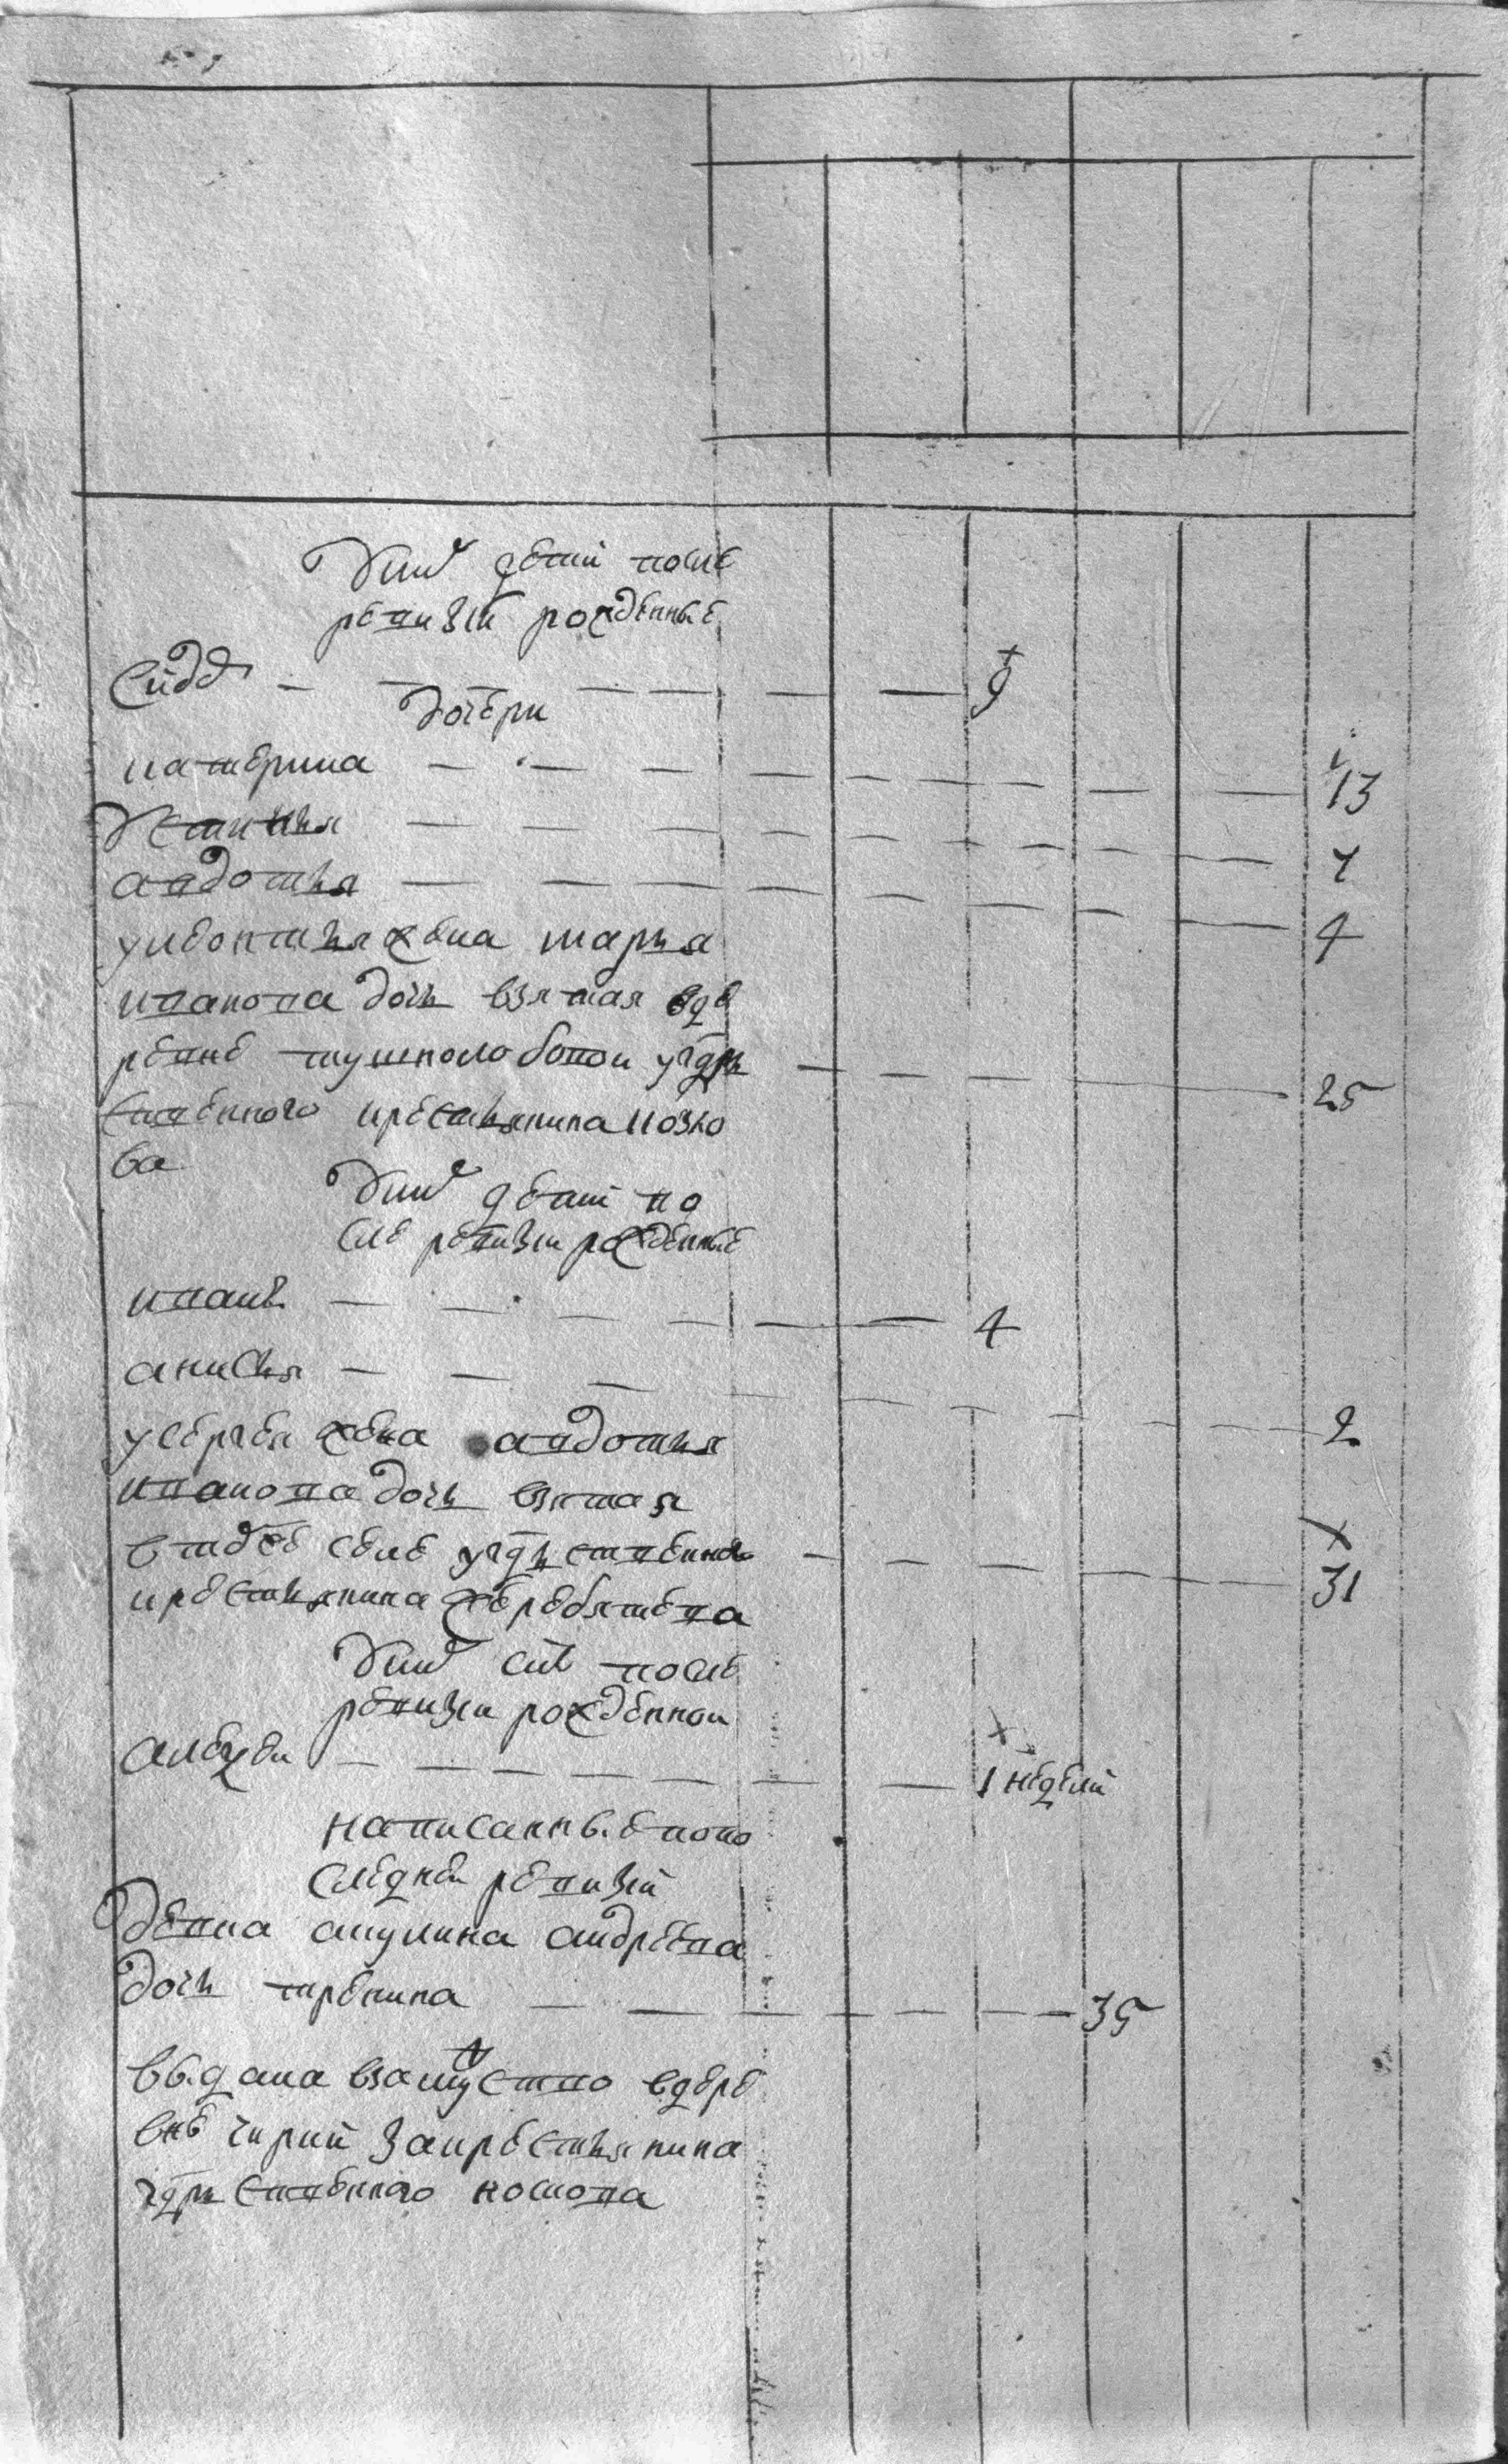 у них дети после
ревизии рожденные
Сидор 9
дочери
катерина 13
устинья 7
авдотья 4
у леонтья жена марья
иванова дочь взятая в де
ревне тушнолобовои у гдр
ственного крестьянина козло
ва 25
у них дети по
сле ревизии рожденные
иванъ 4
анисья 2
у сергея жена авдотья
иванова дочь взятая
в селе у гдрственного
крестьянина жеребятева 31
у них снъ после
ревизии рожденнои
алексеи 1 неделии
написанные по по
следнеи ревизии
девка акулина андреева
дочь тренина 35
выдана в замуство в дере
вне за крестьянина
гдрственного носкова